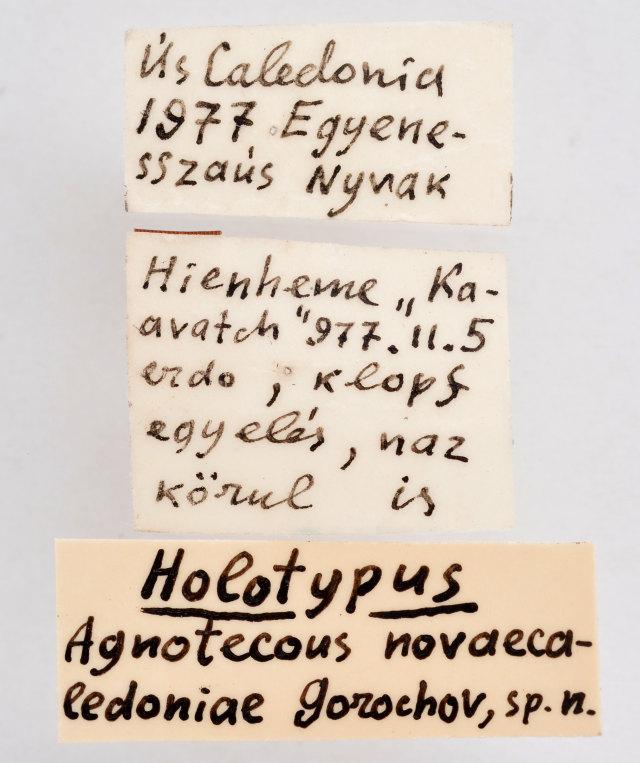 Ús Caledonia
1977 Egyene-
sszaús Nyvak
Hienheme „Ka-
avatch" 977.11.5
erdo, klops
egyelés, naz
körul is
Holotypus
Agnotecous novaeca-
ledoniae Gorochov, sp. n.